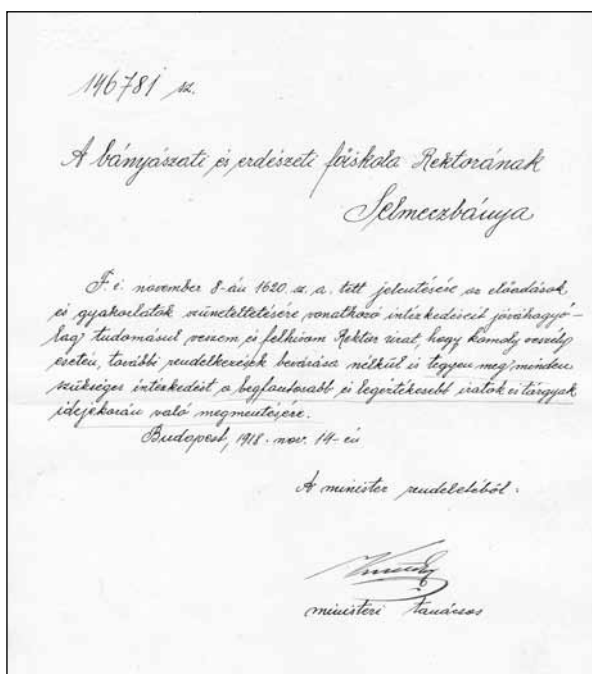 146781 sz.
A bányászati és erdészeti főiskola Rektorának
Selmeczbánya
F. é. november 8-án 1620 sz. a. tett jelentésére az előadások
és gyakorlatok szüneteltetésére vonatkozó intézkedéseit jóváhagyó-
lag tudomásul veszem és felhívom Rektor urat, hogy komoly veszély
esetén, további rendelkezések bevárása nélkül is tegyen meg minden
szükséges intézkedést a legfontosabb és legértékesebb iratok és tárgyak
idejekorán való megmentésére.
Budapest, 1918. nov. 14-én
A minister rendeletéből.
ministeri tanácsos